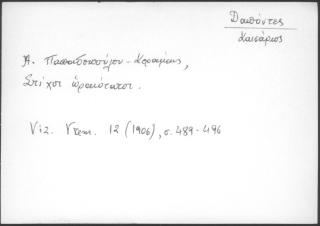 Δαπόντες
Καισάριος
Α. Παπαδοπούλου-Κεραμέως,
Στίχοι ὡραιότατοι.
Viz. Vrem. 12 (1906), σ. 489-496